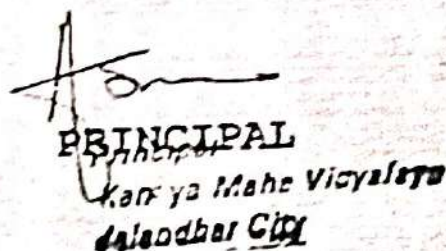 PRINCIPAL
Principal
Kanya Maha Vidyalaya
Jalandhar City